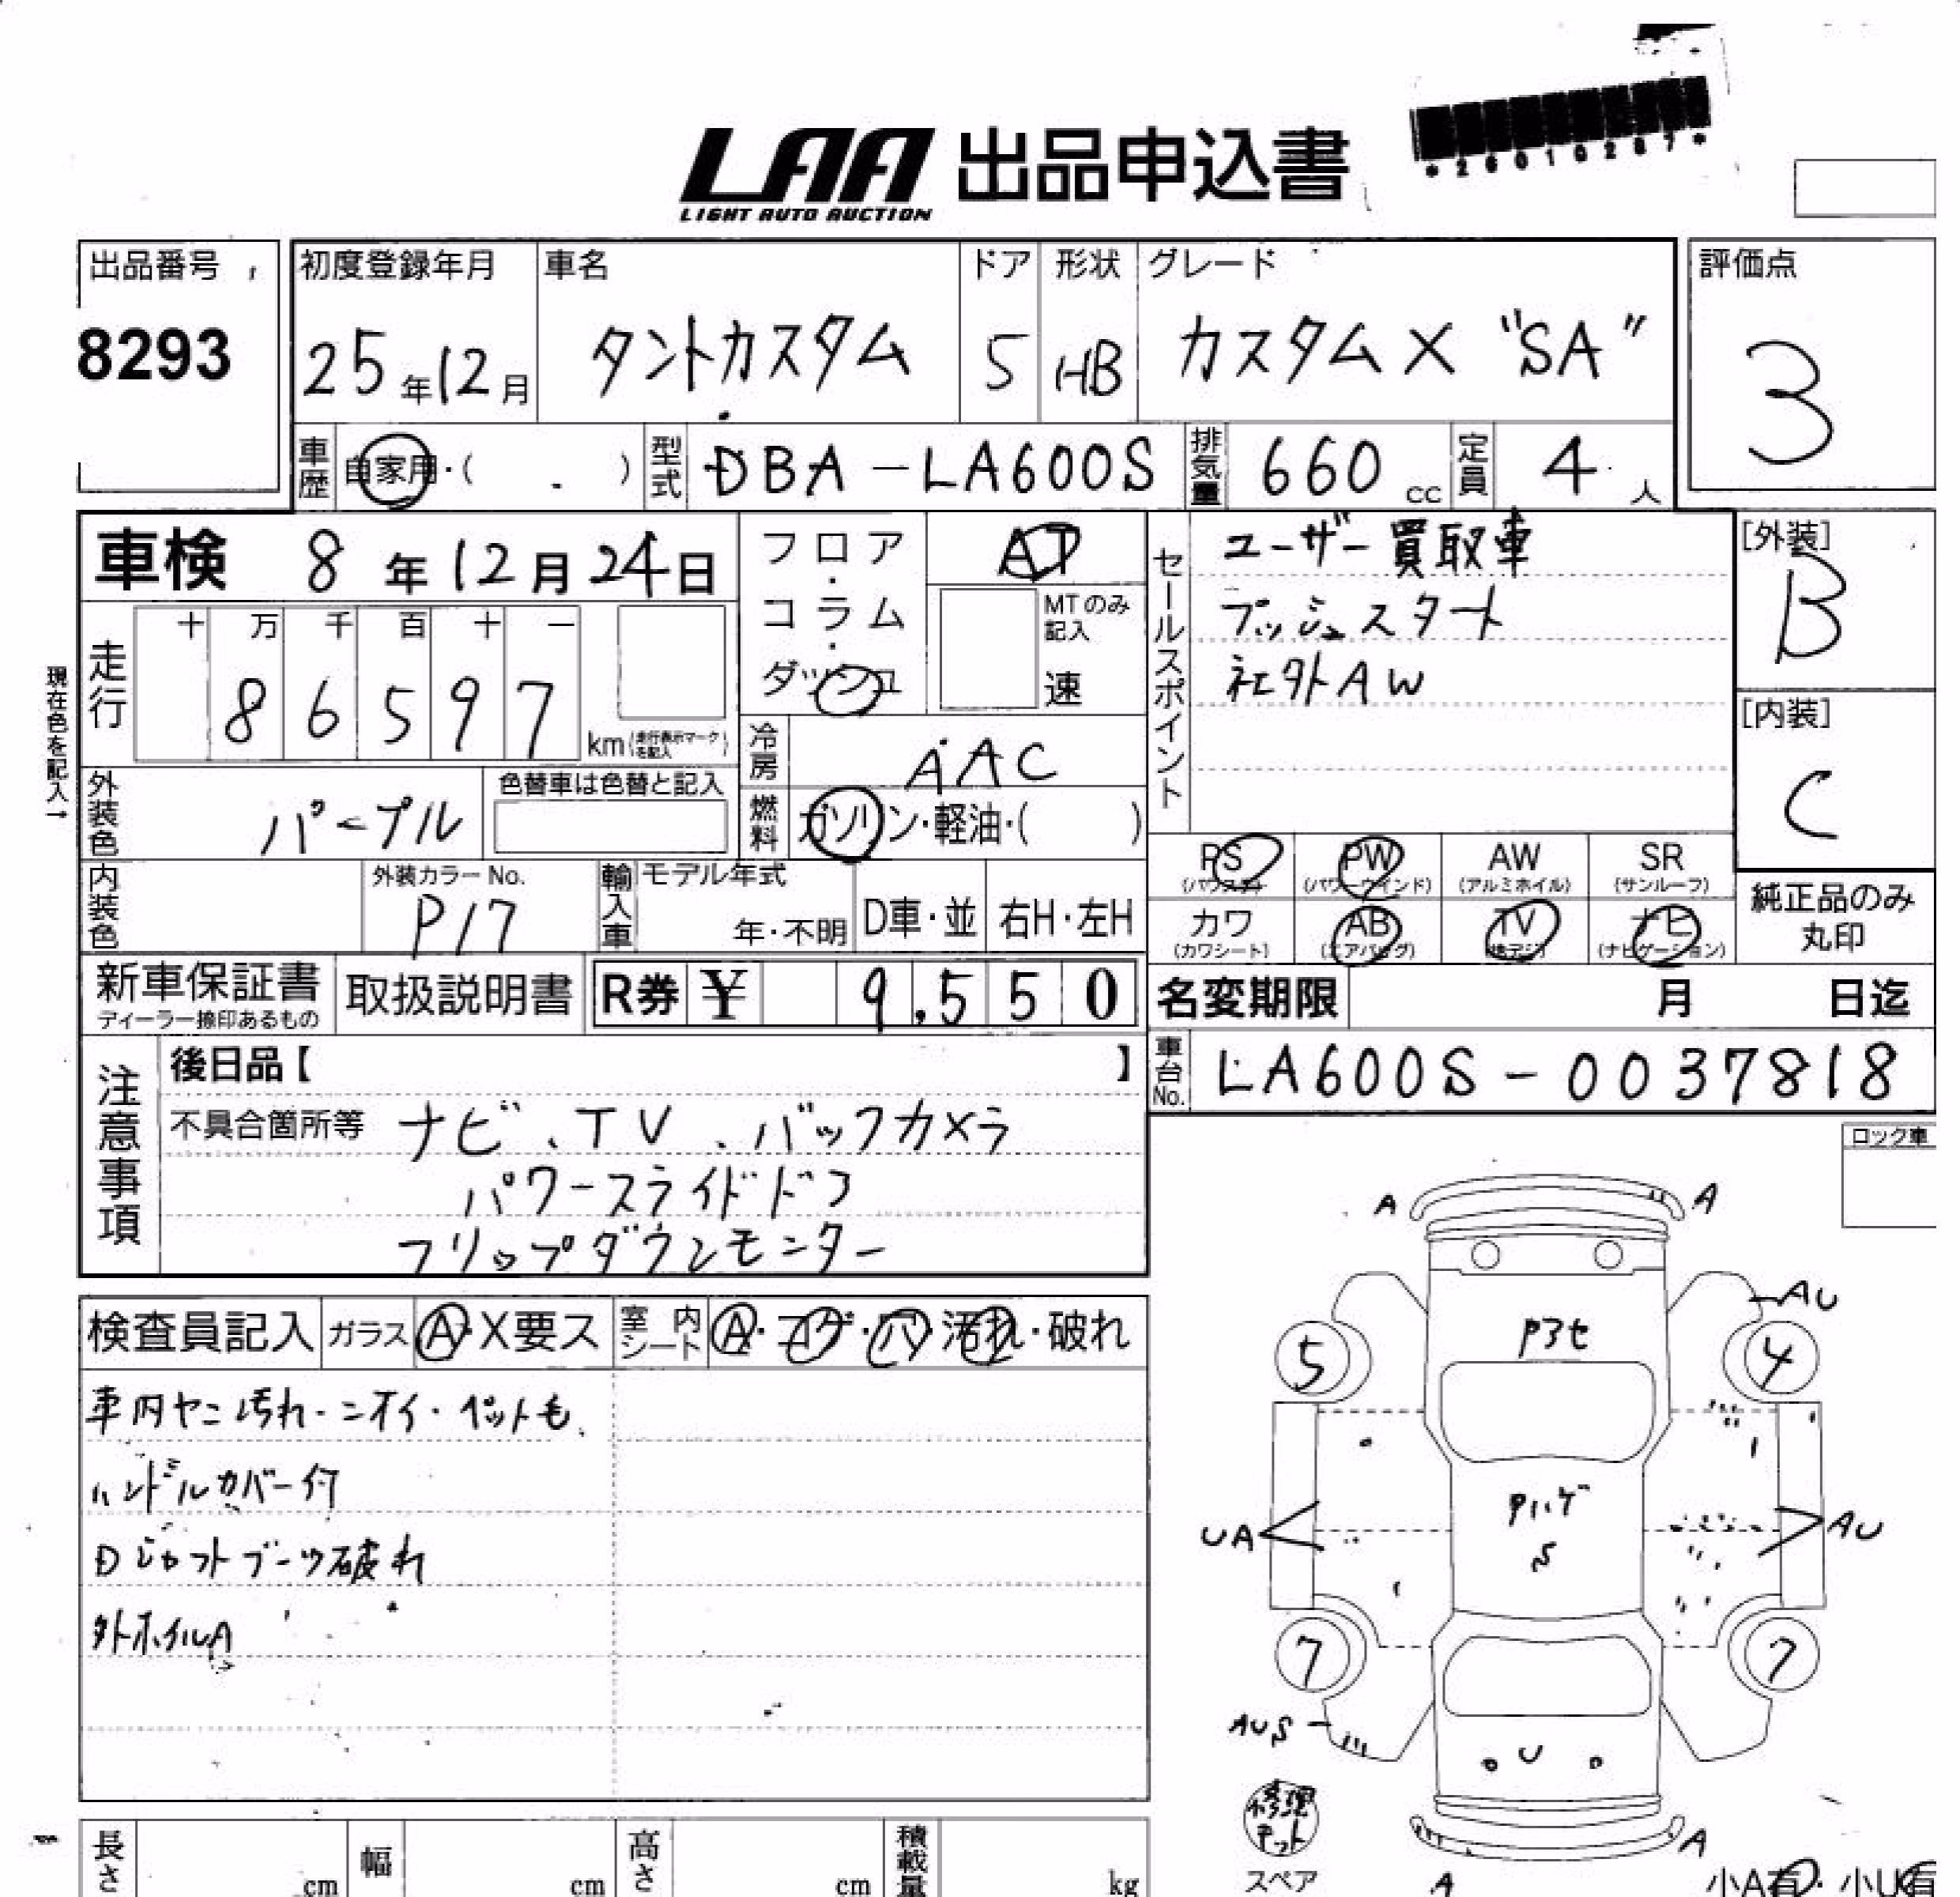 LAA 出品申込書
LIGHT AUTO AUCTION
*26010287*
出品番号
8293
初度登録年月
25年12月
車名
タントカスタム
ドア
5
形状
HB
グレード
カスタムX "SA"
評価点
3
車歴 自家用・( )
型式 DBA-LA600S
排気量 660 cc
定員 4 人
車検 8年12月24日
走行
十 万 千 百 十 一
8 6 5 9 7 km (走行表示マークを記入)
現在色を記入→
外装色 パープル
色替車は色替と記入
内装色
外装カラーNo.
P17
輸入車 モデル年式
年・不明 D車・並 右H・左H
フロア・コラム・ダッシュ
AT
MTのみ記入
速
冷房 AAC
燃料 ガソリン・軽油・( )
セールスポイント
ユーザー買取車
プッシュスタート
社外AW
[外装]
B
[内装]
C
PS (パワステ) PW (パワーウインド) AW (アルミホイル) SR (サンルーフ)
カワ (カワシート) AB (エアバッグ) TV (地デジ) ナビ (ナビゲーション)
純正品のみ丸印
新車保証書
ディーラー捺印あるもの
取扱説明書
R券 ¥ 9,550
名変期限 月 日迄
車台No. LA600S-0037818
注意事項
後日品【 】
不具合箇所等 ナビ、TV、バックカメラ
パワースライドドア
フリップダウンモニター
ロック車
検査員記入 ガラス A・X要ス 室内シート A・コゲ・バ・汚れ・破れ
車内ヤニ汚れ・ニオイ・ペット毛
ハンドルカバー付
Dシャフトブーツ破れ
外ホイルA
A A
AU
P3セ
5 4
Pハゲ
S
UA AU
7 7
AUS
U
修理キット
スペア
A
A
小A有・小U有
長さ cm
幅 cm
高さ cm
積載量 kg